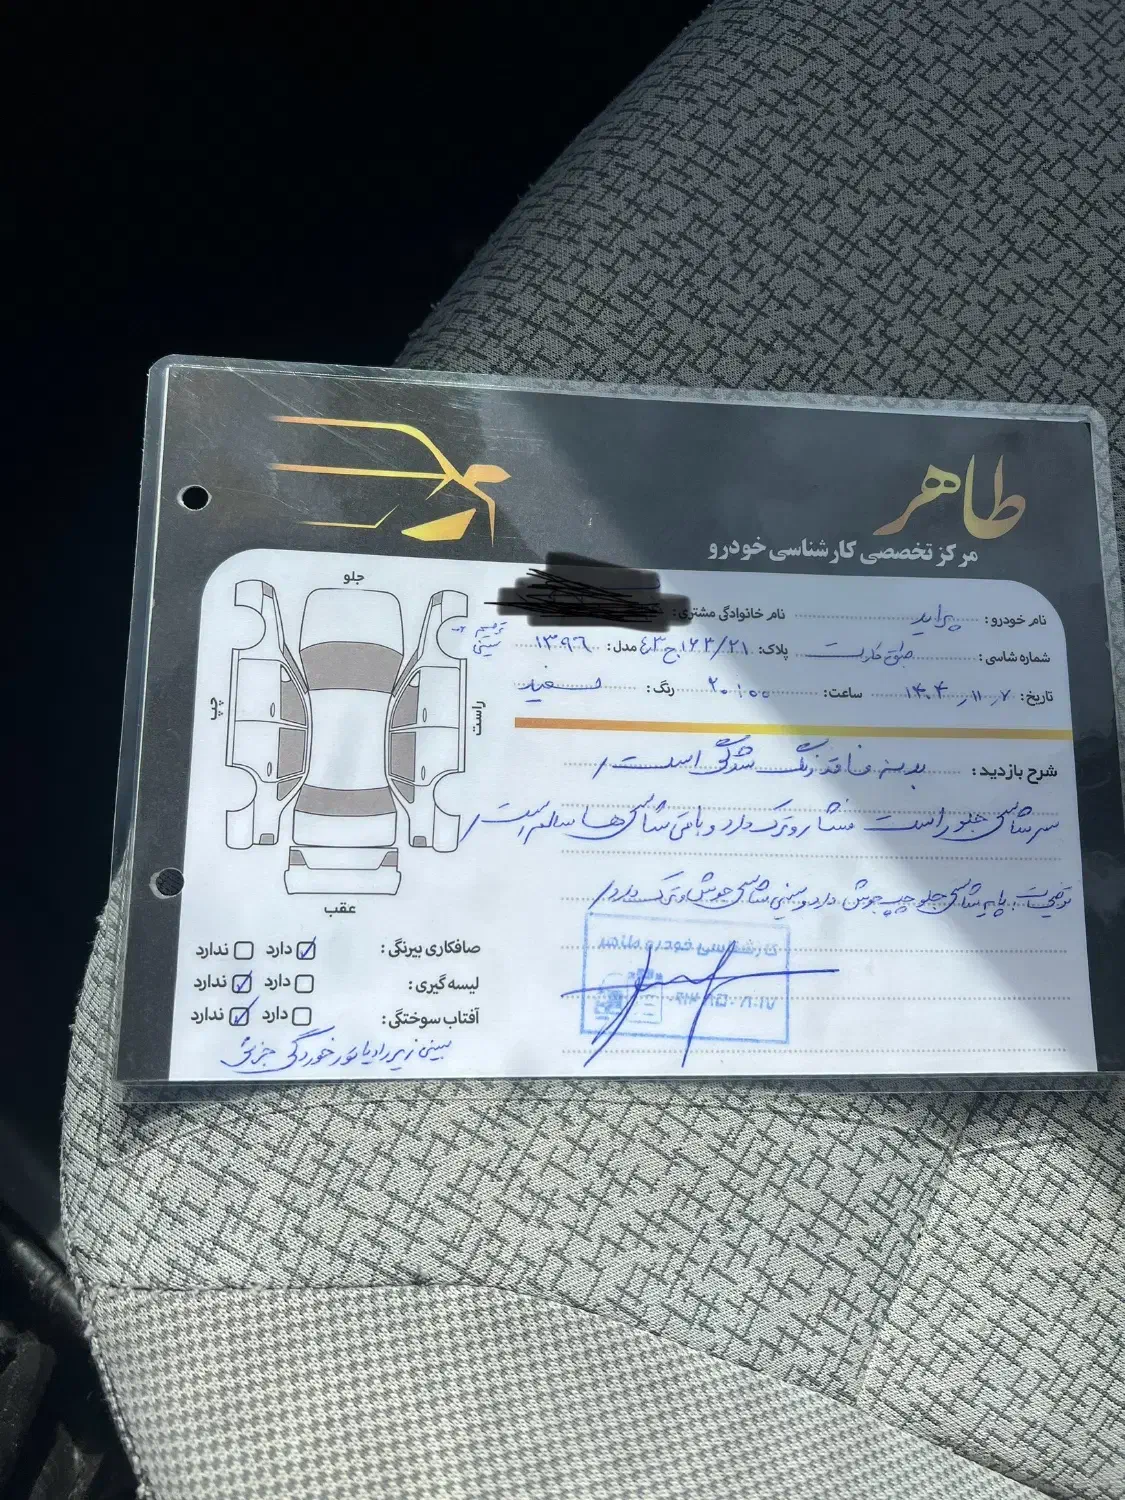 طاهر
مرکز تخصصی کارشناسی خودرو
نام خودرو: پراید
نام خانوادگی مشتری:
شماره شاسی: طبق کارت
پلاک: ۲۱/۱۶۳ ج ۴۳
مدل: ۱۳۹۶
ترمیم
سینی
تاریخ: ۱۴۰۴/۱۱/۷
ساعت: ۲۰:۰۰
رنگ: سفید
شرح بازدید: بدنه فاقد رنگ شدگی است
سرشاسی جلو راست فشار و ترک دارد و باقی شاسی ها سالم است
توضیحات: پایه شاسی جلو چپ جوش دارد و سینی شاسی جوش و ترک دارد
جلو
چپ
راست
عقب
صافکاری بیرنگی: دارد ندارد
لیسه گیری: دارد ندارد
آفتاب سوختگی: دارد ندارد
سینی زیر رادیاتور خوردگی جزئی